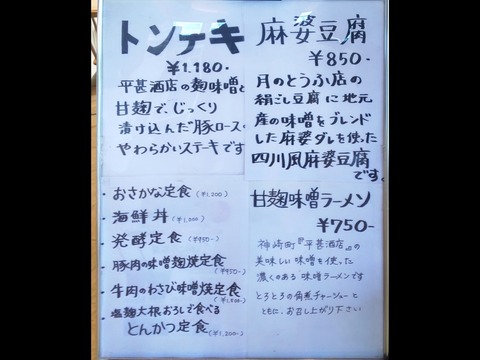 トンテキ
¥1.180-
平甚酒店の麹味噌と
甘麹で、じっくり
漬け込んだ豚ロースの
やわらかいステーキです
麻婆豆腐
¥850-
月のとうふ店の
絹ごし豆腐に地元
産の味噌をブレンド
した麻婆ダレを使った
四川風麻婆豆腐
です。
・おさかな定食(¥1.200)
・海鮮丼(¥1,000)
・発酵定食(¥950-)
・豚肉の味噌麹焼定食
(¥950-)
・牛肉のわさび味噌焼定食
(¥1,500-)
・塩麹大根おろしで食べる
とんかつ定食(¥1,200-)
甘麹味噌ラーメン
¥750-
神崎町『平甚酒店』の
美味しい味噌を使った
濃くのある味噌ラーメンです
とろとろの角煮チャーシューと
ともに、お召し上がり下さい